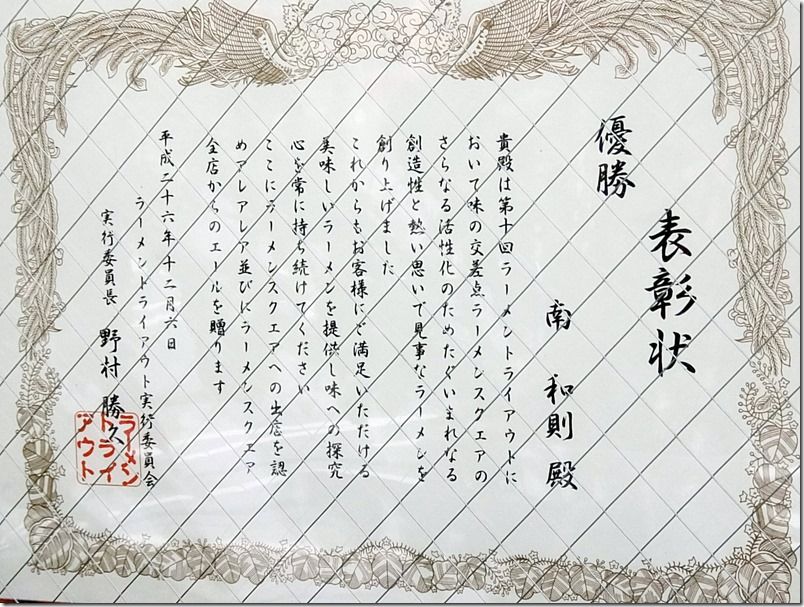 表彰状
優勝
南 和則 殿
貴殿は第十回ラーメントライアウトに
おいて味の交差点ラーメンスクエアの
さらなる活性化のためたぐいまれなる
創造性と熱い思いで見事なラーメンを
創り上げました
これからもお客様にご満足いただける
美味しいラーメンを提供し味への探究
心を常に持ち続けてください
ここにラーメンスクエアへの出店を認
めアレアレア並びにラーメンスクエア
全店からのエールを贈ります
平成二十六年十二月六日
ラーメントライアウト実行委員会
実行委員長 野村 勝久
ラーメン
トライ
アウト